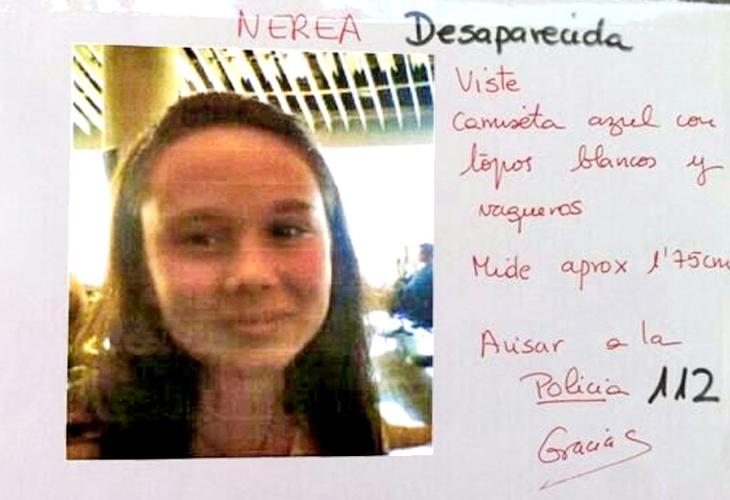 NEREA Desaparecida
Viste
camiseta azul con
topos blancos y
vaqueros
Mide aprox 1'75cm
Avisar a la
Policia 112
Gracias